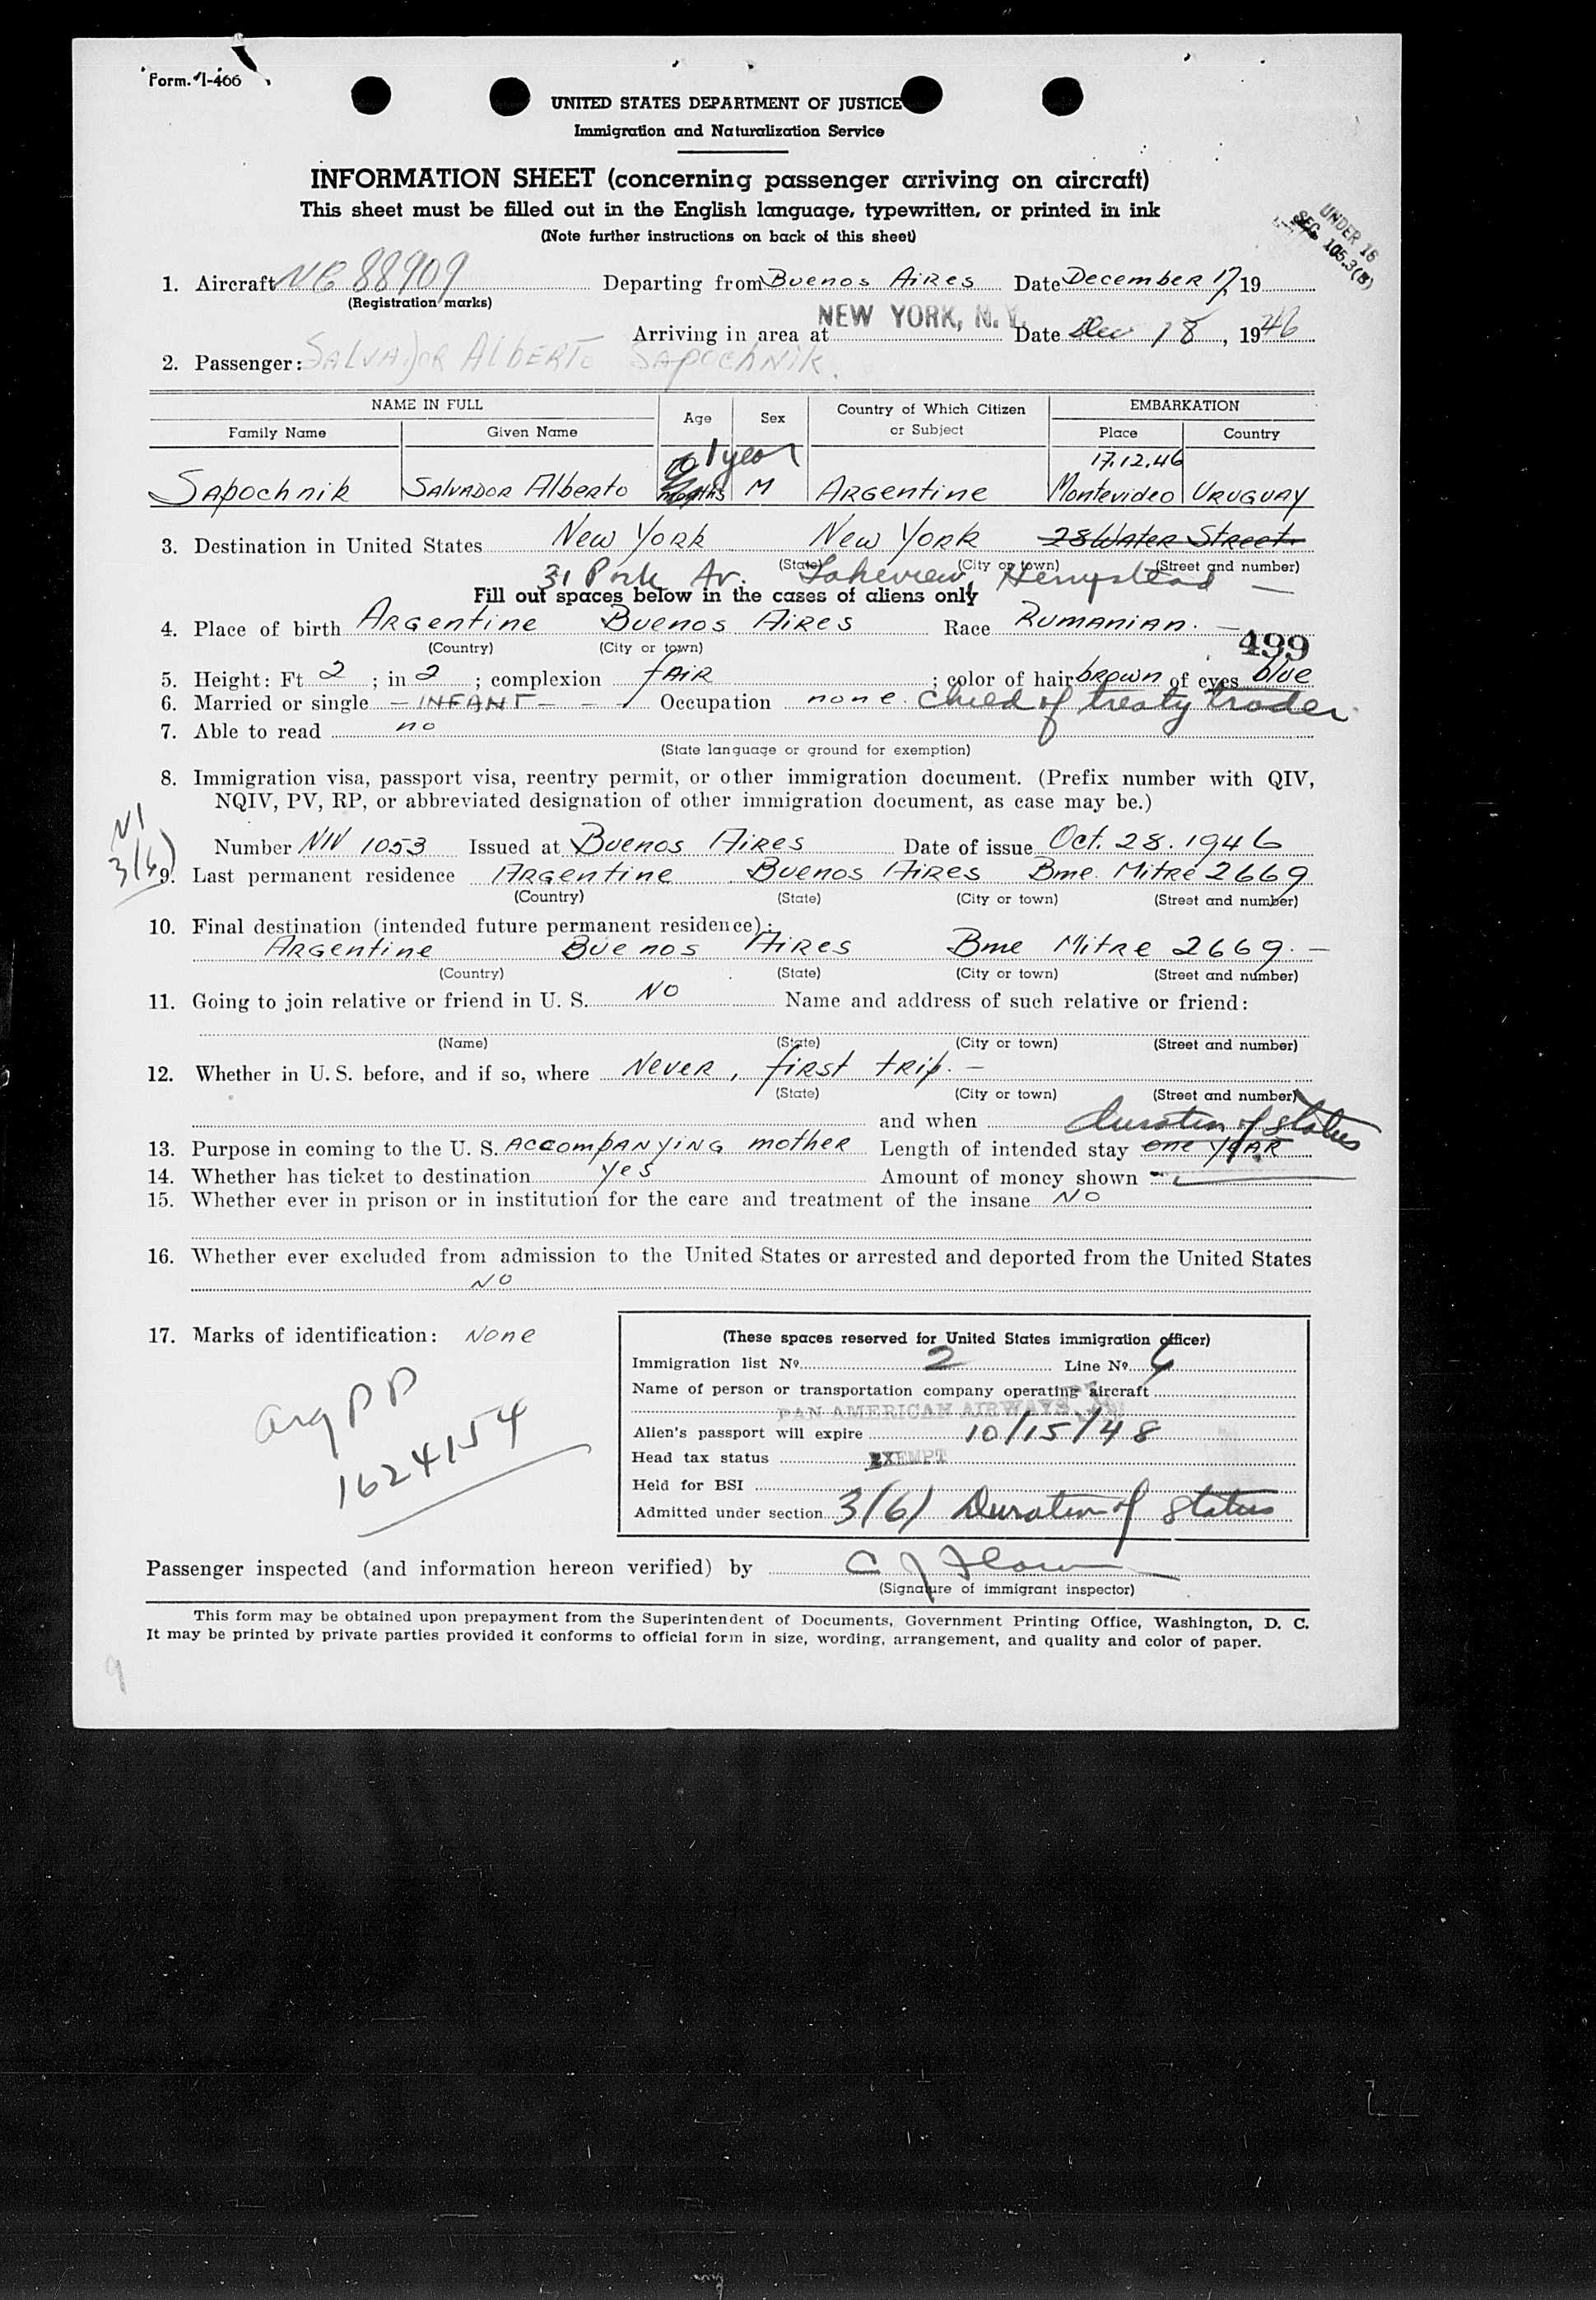 Form I-466
UNITED STATES DEPARTMENT OF JUSTICE
Immigration and Naturalization Service
INFORMATION SHEET (concerning passenger arriving on aircraft)
This sheet must be filled out in the English language, typewritten, or printed in ink
(Note further instructions on back of this sheet)
UNDER 16
SEC. 105.3(B)
1. Aircraft NC 88909 Departing from Buenos Aires Date December 17, 19
(Registration marks)
Arriving in area at NEW YORK, N.Y. Date Dec 18, 1946
2. Passenger: SALVADOR ALBERTO SAPOCHNIK.
NAME IN FULL Age Sex Country of Which Citizen or Subject EMBARKATION
Family Name Given Name Place Country
1 year 17.12.46
Sapochnik SALVADOR Alberto 10 months M ARGentine Montevideo URUGUAY
3. Destination in United States New York New York 28 Water Street.
(State) (City or town) (Street and number)
31 Park Av. Lakeview, Hempstead —
Fill out spaces below in the cases of aliens only
4. Place of birth ARGentine Buenos Aires Race Rumanian. —
(Country) (City or town)
499
5. Height: Ft 2 ; in 2 ; complexion fair ; color of hair brown of eyes blue
6. Married or single - INFANT - - - Occupation none. Child of treaty trader
7. Able to read no
(State language or ground for exemption)
8. Immigration visa, passport visa, reentry permit, or other immigration document. (Prefix number with QIV,
NQIV, PV, RP, or abbreviated designation of other immigration document, as case may be.)
NI
3(6)
Number NIV 1053 Issued at Buenos Aires Date of issue Oct. 28. 1946
9. Last permanent residence ARGentine Buenos Aires Bme. Mitre 2669
(Country) (State) (City or town) (Street and number)
10. Final destination (intended future permanent residence):
ARGentine Buenos Aires Bme Mitre 2669. —
(Country) (State) (City or town) (Street and number)
11. Going to join relative or friend in U. S. NO Name and address of such relative or friend:
(Name) (State) (City or town) (Street and number)
12. Whether in U. S. before, and if so, where Never, first trip. —
(State) (City or town) (Street and number)
and when duration of status
13. Purpose in coming to the U. S. Accompanying mother Length of intended stay one year
14. Whether has ticket to destination yes Amount of money shown -
15. Whether ever in prison or in institution for the care and treatment of the insane NO
16. Whether ever excluded from admission to the United States or arrested and deported from the United States
NO
17. Marks of identification: None
arg PP
1624154
(These spaces reserved for United States immigration officer)
Immigration list No 2 Line No 6
Name of person or transportation company operating aircraft
PAN AMERICAN AIRWAYS,
Alien's passport will expire 10/15/48
Head tax status EXEMPT
Held for BSI
Admitted under section 3(6) Duration of status
Passenger inspected (and information hereon verified) by C J
(Signature of immigrant inspector)
This form may be obtained upon prepayment from the Superintendent of Documents, Government Printing Office, Washington, D. C.
It may be printed by private parties provided it conforms to official form in size, wording, arrangement, and quality and color of paper.
9